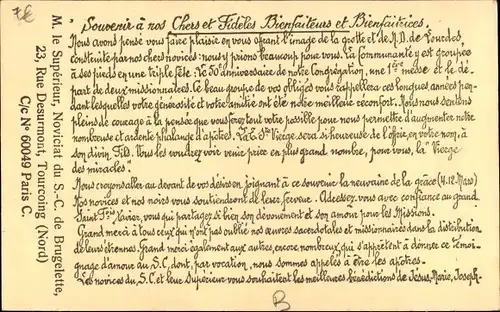 7€
Souvenir à nos Chers et Fidèles Bienfaiteurs et Bienfaitrices.
Nous avons pensé vous faire plaisir en vous offrant l'image de la grotte et de N.D. de Lourdes,
construite par nos chers novices: nous y prions beaucoup pour vous. La Communauté y est groupée
à ses pieds en une triple fête. Le 50e anniversaire de notre Congrégation, une 1ère messe et le dé-
part de deux missionnaires. Ce beau groupe de vos obligés vous rappellera ces longues années pen-
dant lesquelles votre générosité et votre amitié ont été notre meilleur réconfort. Nous nous sentons
pleins de courage à la pensée que vous ferez tout votre possible pour nous permettre d'augmenter notre
nombreuse et ardente phalange d'apôtres. La Ste Vierge sera si heureuse de l'offrir, en votre nom, à
son divin Fils. Vous les voudrez voir venir prier en plus grand nombre, pour vous, la Vierge
des miracles.
Nous croyons aller au devant de vos désirs en joignant à ce souvenir la neuvaine de la grâce (4-12 Mars)
Nos novices et nos noirs vous soutiendront de leur ferveur. Adressez-vous avec confiance au grand
Saint Frs Xavier, vous qui partagez si bien son dévouement et son amour pour les Missions.
Grand merci à tous ceux qui n'ont pas oublié nos œuvres sacerdotales et missionnaires dans la distribution
de leurs étrennes. Grand merci également aux autres, encore nombreux, qui s'apprêtent à donner ce témoi-
gnage d'amour au S.C. dont, par vocation, nous sommes appelés à être les apôtres.
Les novices du S.C. et leur Supérieur vous souhaitent les meilleures bénédictions de Jésus, Marie, Joseph.
M. le Supérieur, Noviciat du S.-C. de Brugelette,
23, Rue Desurmont, Tourcoing (Nord)
C/c No 60049 Paris C.
B